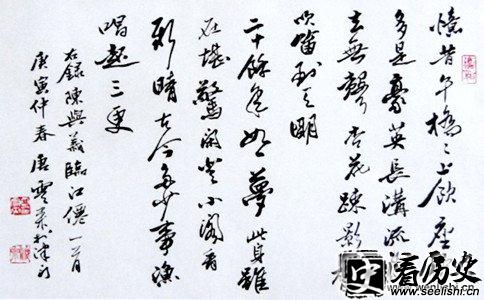 憶昔午橋〻上飲座中
多是豪英長溝流月
去無聲杏花疎影裡
吹笛到天明
二十餘年如一夢此身雖
在堪驚閒登小閣看
新晴古今多少事漁
唱起三更
右錄陳與義臨江僊一首
庚寅仲春唐雲來於津門
史
看历史
www.seelishi.cn